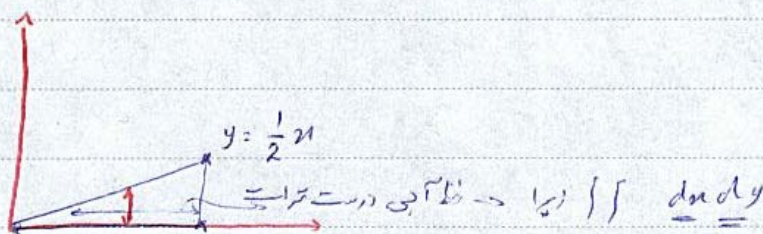 y = 1/2 x
خط آبی درست تر است → زیرا ∫∫ dx dy